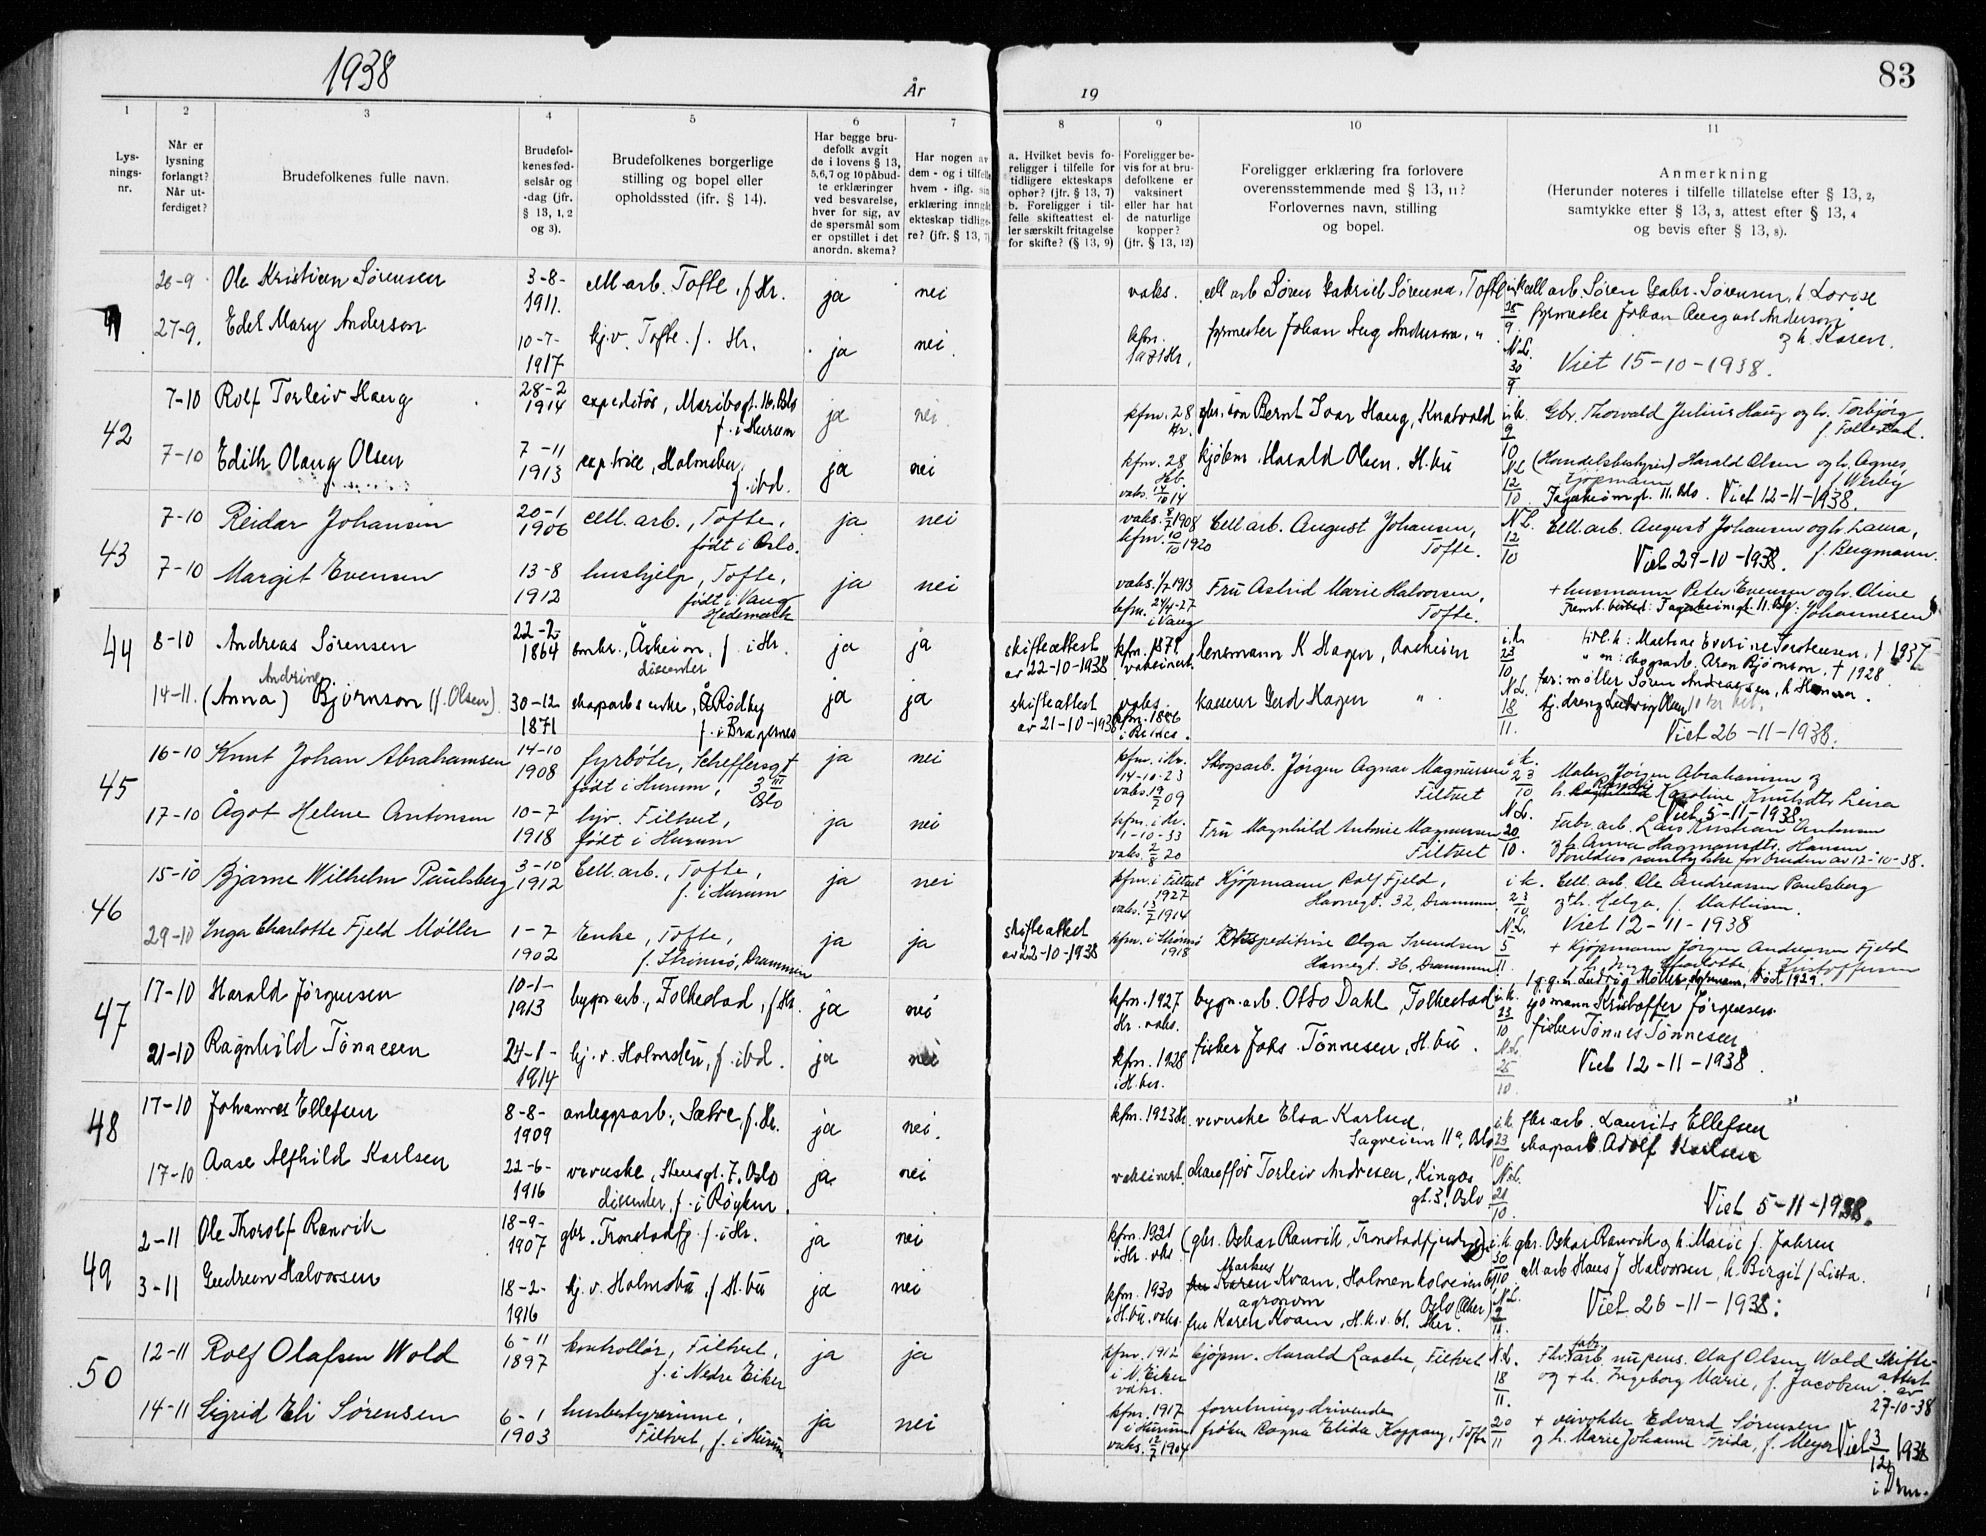 1938
År
19
83
1
2
3
4
5
6
7
8
9
10
11
Lys-
nings-
nr.
Når er
lysning
forlangt?
Når ut-
ferdiget?
Brudefolkenes fulle navn.
Brudefol-
kenes fød-
selsår og
-dag (jfr.
§ 13, 1, 2
og 3).
Brudefolkenes borgerlige
stilling og bopel eller
opholdssted (ifr. § 14).
Har begge bru-
defolk avgit
de i lovens § 13,
5,6,7 og 10 påbud-
te erklæringer
ved besvarelse,
hver for sig, av
de spørsmål som
er opstillet i det
anordn. skema?
Har nogen av
dem - og i tilfelle
hvem - iflg. sin
erklæring inngått
ekteskap tidlige-
re? (jfr. § 13, 7)
a. Hvilket bevis fo-
religger i tilfelle for
tidligere ekteskaps
ophør? (jfr. § 13, 7)
b. Foreligger i til-
felle skifteattest el-
ler særskilt fritagelse
for skifte? (§ 13, 9)
Foreligger be-
vis for at bru-
defolkene er
vaksinert
eller har hat
de naturlige
kopper?
(jfr. § 13, 12)
Foreligger erklæring fra forlovere
overensstemmende med § 13, 11?
Forlovernes navn, stilling
og bopel.
Anmerkning
(Herunder noteres i tilfelle tillatelse efter § 13, 2,
samtykke efter § 13, 3, attest efter § 13, 4
og bevis efter § 13, 8).
26-9 Ole Kristian Sørensen 3-8-1911. cell. arb. Tofte, f. Hr. ja nei vaks. cell arb Søren Gabriel Sørensen, Tofte i.k. 25/9 cell arb. Søren Gabr. Sørensen, h. Lovise
27-9. Edel Mary Anderson 10-7-1917 hj.v. Tofte. f. Hr. ja nei kfm. 1931 Hr. fyrmester Johan Aug Anderson, " N.L. 30/9 fyrmester Johan August Anderson
og h. Karen.
Viet 15-10-1938.
42 7-10 Rolf Torleiv Haug 28-2 1914 expeditør, Maribogt. 16, Oslo
f. i Hurum ja nei kfm. 28 Hr. gbr. søn Bernt Ivar Haug, Knatvold i.k. 9/10 Gbr. Thorvald Julius Haug og h. Torbjørg
f. Follestad.
7-10 Edith Olaug Olsen 7-11 1913 exp.trise, Holmsbu,
f. ibd. ja nei kfm. 28 Hb.
vaks. 14/10 14 kjøbm. Harald Olsen. H.bu N.L. 12/10 (Handelsbestyrer) Harald Olsen og h. Agnes,
kjøpmann f. Werby
Fagerheimgt. 11. Oslo. Viet 12-11-1938.
43 7-10 Reidar Johansen 20-1 1906 cell. arb., Tofte,
født i Oslo. ja nei vaks. 8/7 1908
kfm. 10/10 1920 Cell arb. August Johansen,
Tofte. N.L. 12/10 Cell. arb. August Johansen og h. Laura,
f. Bergmann.
Viet 29-10-1938.
7-10 Margit Evensen 13-8 1912 hushjelp, Tofte,
født i Vang
Hedemark ja nei vaks. 1/7 1913
kfm. 24/4-27
i Vang Fru Astrid Marie Halvorsen,
Tofte. + husmann Peter Evensen og h. Oline
f. Johannesen
44 8-10 Andreas Sørensen 22-2- 1864 Åsheim, f. i Hr.
dissenter ja ja skifteattest
av 22-10-1938 kfm. 1879
vaksinert lensmann K Hagen, Aasheim i.k. 23/10 tidl. h: Martine Everine Torstensen, † 1937
" m: skogsarb. Aron Bjørnson, † 1928.
14-11. (Anna) Andrine Bjørnson (f. Olsen) 30-12 1871 skogarbs enke, Å Rødby
f. i Bragernes ja ja skifteattest
av 21-10-1938 vaks.
kfm. 1886 kasserer Gerd Hagen " N.L. 18/11. far: møller Søren Andreassen, h Hanna.
hj. dreng Ludvig Olsen
Viet 26-11-1938.
45 16-10 Knut Johan Abrahamsen 14-10 1908 fyrbøter, Scheffersgt
3 III
født i Hurum, Oslo ja nei kfm. i Hr.
14-10-23
vaks. 19/7 09 Skogsarb. Jørgen Agnar Magnussen
Filtvet i.k. 23/10 Maler Jørgen Abrahamsen og
h. Karoline Knutsdtr Leira
Viet 5-11-1938.
17-10 Ågot Helene Antonsen 10-7 1918 hjv. Filtvet,
født i Hurum ja nei kfm. i Hr.
1-10-33
vaks. 2/8 20 Fru Magnhild Antonie Magnussen
Filtvet N.L. 20/10. Fabr. arb. Lars Kristian Antonsen
og h. Anna Hagmansdtr. Hansen
Foreldres samtykke for bruden av 12-10-38.
46 15-10 Bjarne Wilhelm Paulsberg 3-10 1912 Cell. arb., Tofte,
f. i Hurum ja nei kfm. i Filtvet
1927
vaks. 13/7 1914 Kjøpmann Rolf Fjeld,
Havnegt. 32, Drammen i.k. 23/10 Cell. arb. Ole Andreassen Paulsberg
og h. Helga, f. Mathisen.
Viet 12-11-1938
29-10 Inga Charlotte Fjeld Møller 1-7 1902 Enke, Tofte,
f. Strømsø, Drammen ja ja skifteattest
av 22-10-1938 kfm. i Strømsø
1918 Ekspeditrise Olga Svendsen
Havnegt. 36, Drammen N.L. 5/11. + Kjøpmann Jørgen Andreassen Fjeld
h. Inga Charlotte, f. Kristoffersen
1 g. g. m. Ludvig Møller, død 1929.
47 17-10 Harald Jørgensen 10-1- 1913 bygn arb., Folkestad, f. Hr. ja nei kfm. 1927
Hr. vaks. bygn. arb. Otto Dahl, Folkestad i.k. 23/10 Kristoffer Jørgensen
21-10 Ragnhild Tønnesen 24-1- 1914 hj. v. Holmsbu, f. ibd. ja nei kfm. 1928
i H.bu. fisker Johs. Tønnesen, H.bu. N.L. 25/10 fisker Tønnes Tønnesen
Viet 12-11-1938.
48 17-10 Johannes Ellefsen 8-8- 1909 anleggsarb., Sætre, f. Hr. ja nei. kfm. 1923 Hr. verneske Elsa Karlsen,
Sagveien 11a, Oslo i.k. 23/10 fbr. arb. Laurits Ellefsen
17-10 Aase Alfhild Karlsen 22-6- 1916 Stensgt. 7, Oslo
dissenter, f. i Røyken ja nei vaksinert. chauffør Torleiv Andresen, Kingos
gt. 3, Oslo N.L. 21/10. skogsarb. Adolf Karlsen
Viet 5-11-1938.
49 2-11 Ole Thorolf Rønvik 18-9- 1907 gbr. Tronstadfj. f. i Hr. ja nei kfm. 1921
i Hr. vks. (gbr. Oskar Rønvik, Tronstadfjerdingen) i.k. 30/10 gbr. Oskar Rønvik og h. Marie f. Jahren
3-11 Gudrun Halvorsen 18-2- 1916 hj. v. Holmsbu, f. H.bu ja nei kfm. 1930
i H.bu. vaks. Markus Kvam, Holmenkolveien
agronom Oslo (Aker)
fru Karen Kvam, H.k.v. 61. Aker. N.L. 9/11. cell arb Hans J Halvorsen, h. Birgit f. Lista.
Viet 26-11-1938.
50 12-11 Rolf Olafsen Wold 6-11 1897 kontrollør, Filtvet,
f. i Nedre Eiker ja ja kfm. 1912
i N. Eiker
vaks. kjøpm. Harald Laache, Filtvet N.L. 18/11. Fhv. fabr. arb. nu pens. Olaf Olsen Wold
og + h. Ingeborg Marie, f. Jacobsen. Skifte-
attest
av
27-10-38
14-11 Sigrid Eli Sørensen 6-1 1903 husbestyrerinne,
Filtvet, f. i Hurum ja nei kfm. 1917
i Hurum
vaks. 12/7 1904 forretningsdrivende
frøken Ragna Elida Koppang, Tofte 20/11 + veivokter Edvard Sørensen
og h. Marie Johanne Frida, f. Meyer Viet 3/12 1938
i Drm.